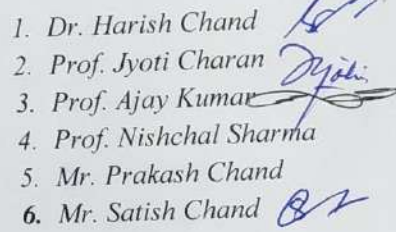 1. Dr. Harish Chand
2. Prof. Jyoti Charan Jyoti
3. Prof. Ajay Kumar
4. Prof. Nishchal Sharma
5. Mr. Prakash Chand
6. Mr. Satish Chand